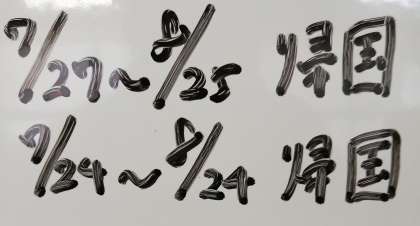 7/27~8/25 帰国
7/24~8/24 帰国